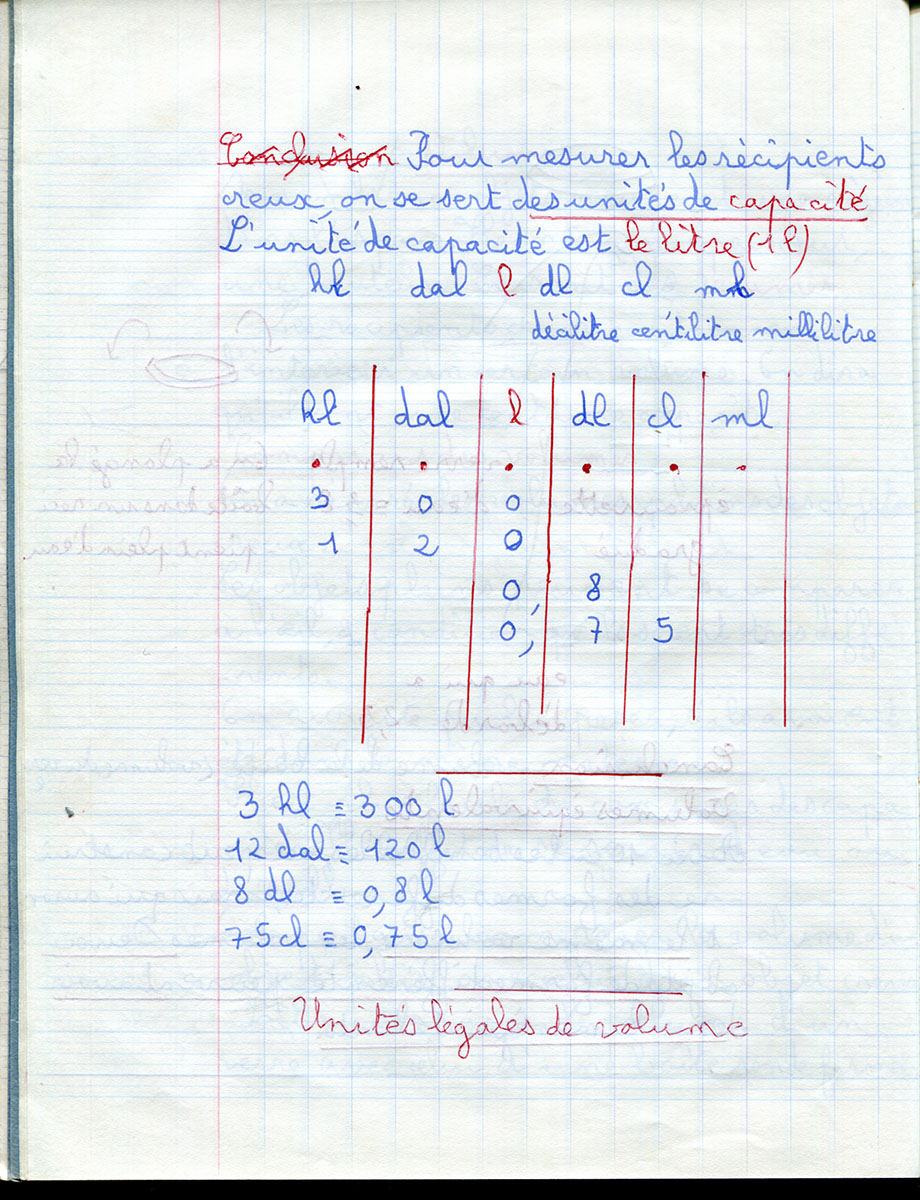 Conclusion Pour mesurer les récipients
creux, on se sert des unités de capacité
L'unité de capacité est le litre (1 l)
hl dal l dl cl ml
décilitre centilitre millilitre
hl dal l dl cl ml
. . . . . .
3 0 0
1 2 0
0, 8
0, 7 5
3 hl = 300 l
12 dal = 120 l
8 dl = 0,8 l
75 cl = 0,75 l
Unités légales de volume